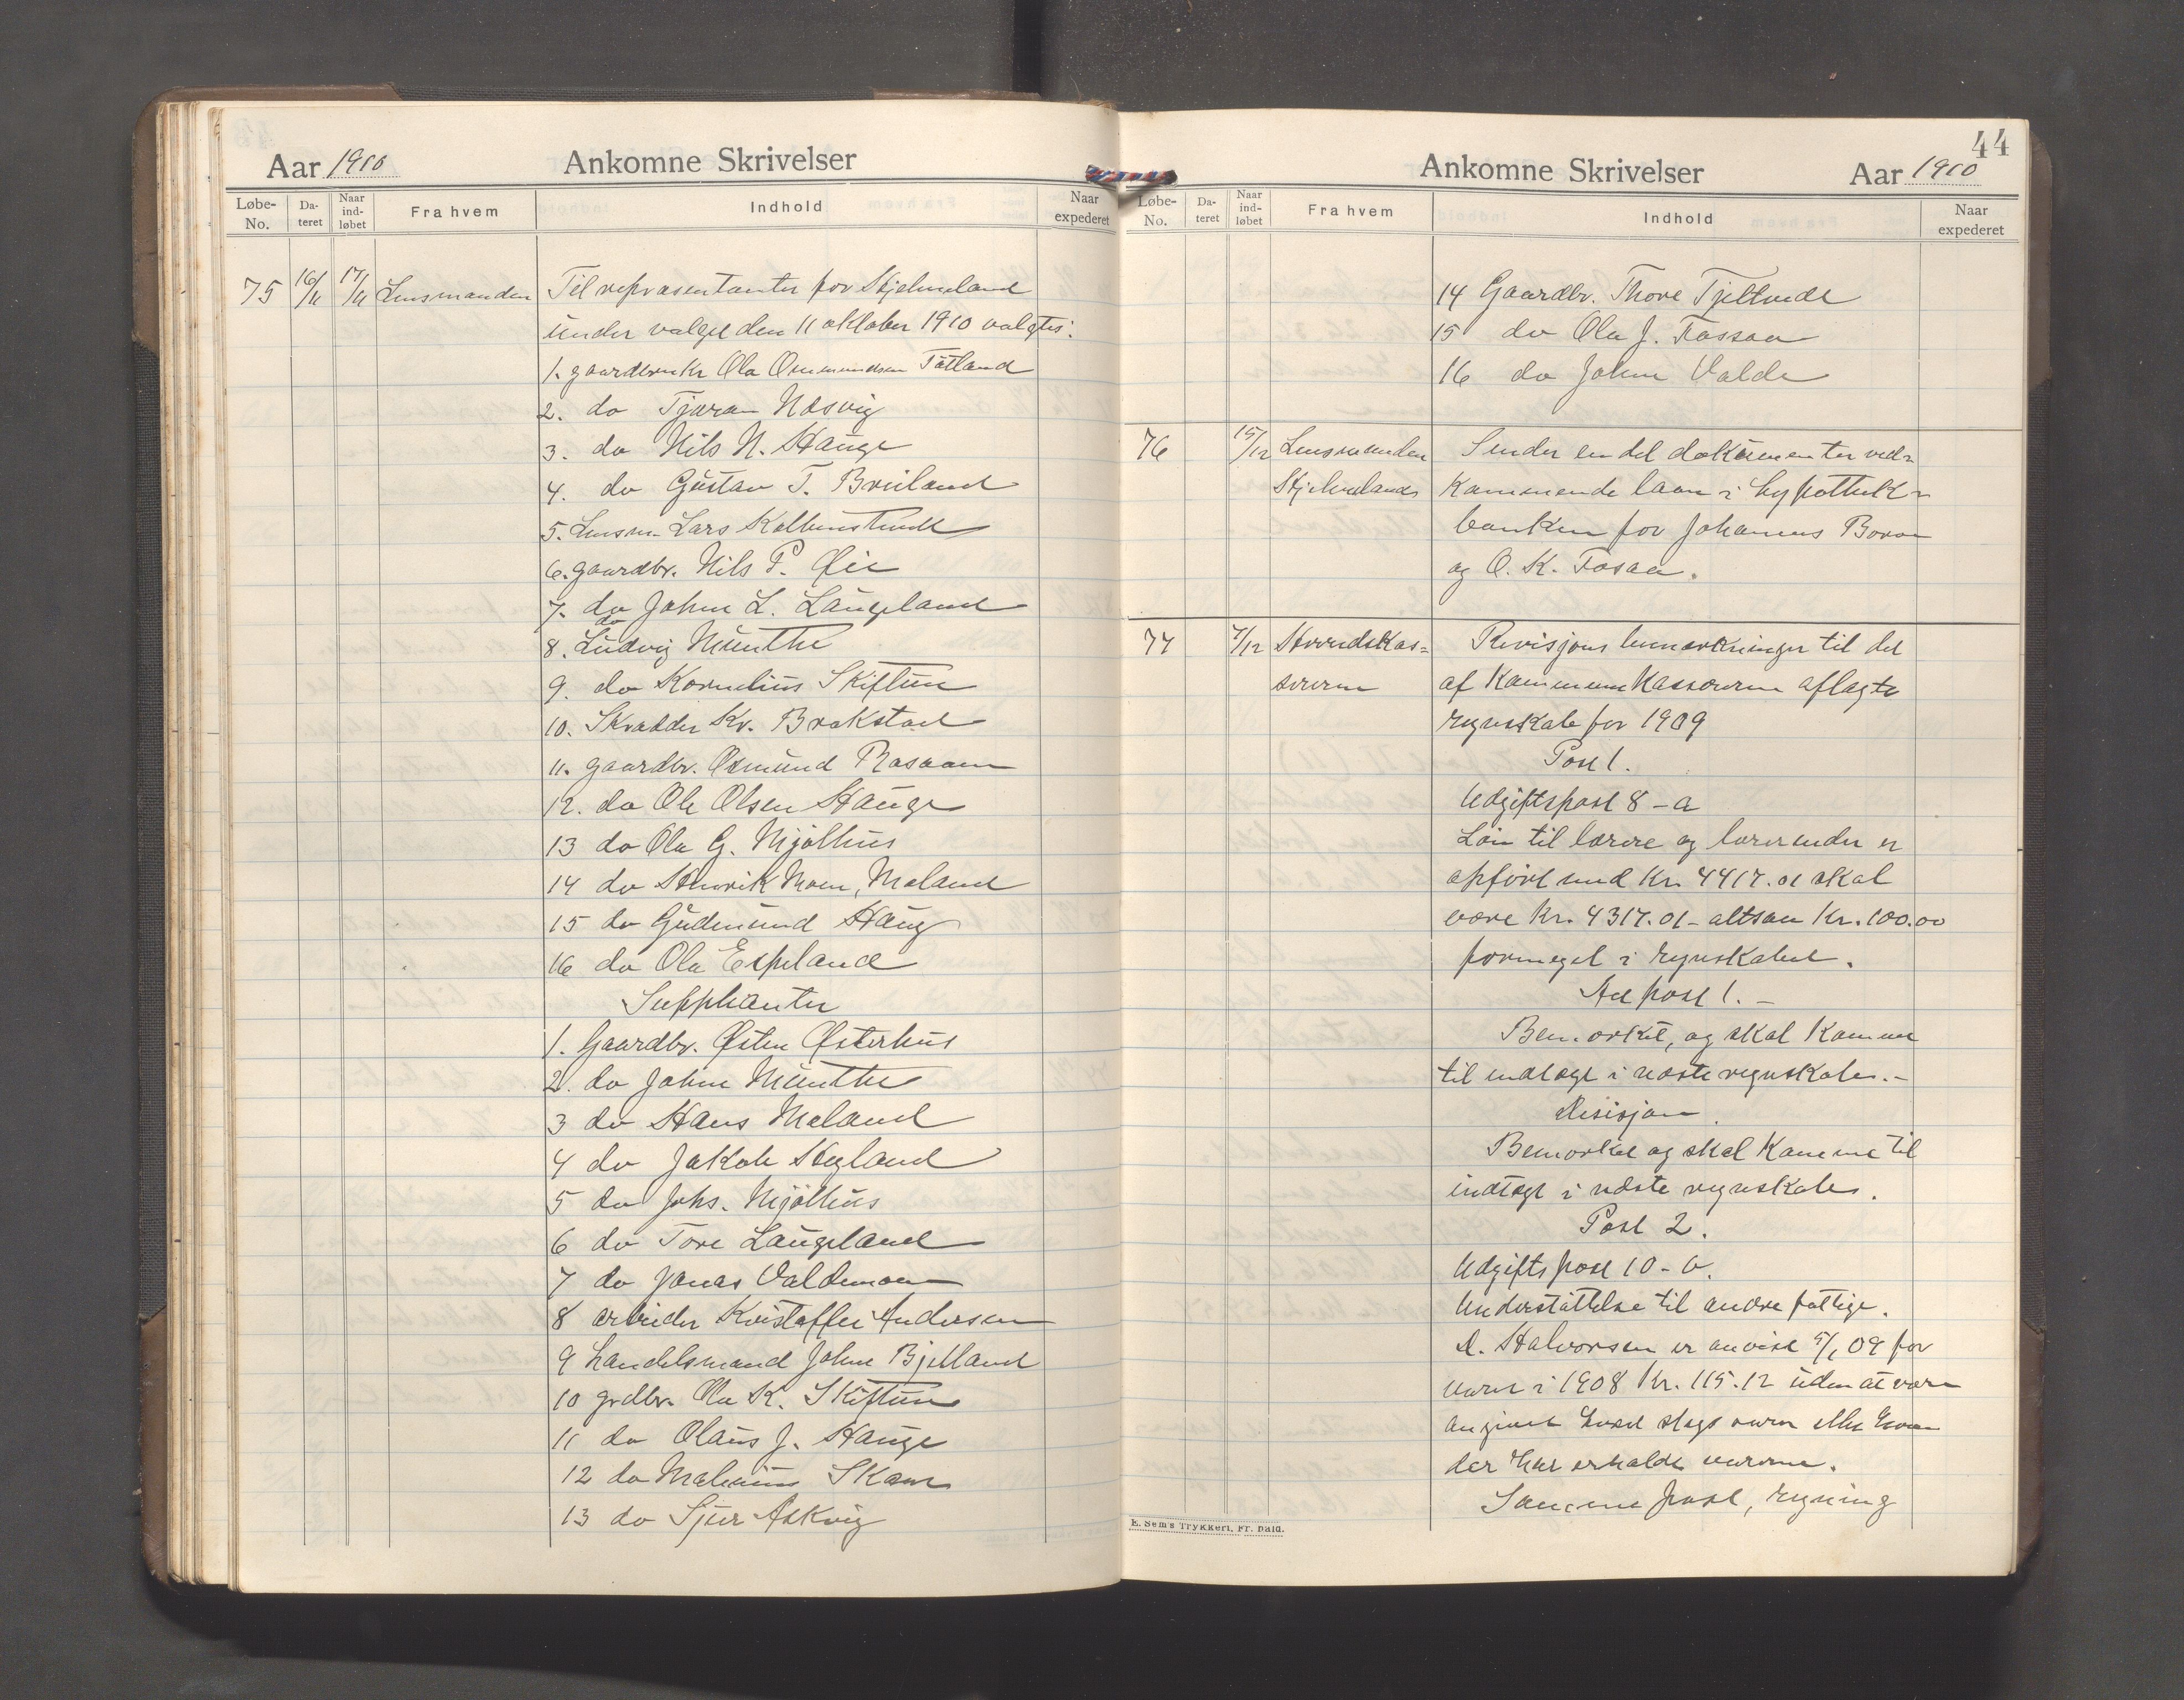 Aar 1910 Ankomne Skrivelser
Løbe-No. Dateret Naar indløbet Fra hvem Indhold Naar expederet
75 16/11 17/11 Lensmanden Til repræsentanter for Skjelmeland
under valget den 11 oktober 1910 valgtes:
1. gaardbruker Ola Osmundsen Tøtland
2. do Tjeran Næsvig
3. do Nils N. Hauge
4. do Gustav T. Breiland
5. Lensm. Lars Kolbenstvedt
6. gaardbr. Nils P. Øie
7. do John L. Laugeland
8. do Ludvig Munthe
9. do Kornelius Skiftun
10. Skrædder Kr. Brakstad
11. gaardbr. Osmund Rasaam
12. do Ole Olsen Hauge
13 do Ola G. Mjølhus
14 do Henrik Moen, Mæland
15 do Gudmund Haug
16 do Ola Espeland
Supplianter
1. Gaardbr. Østen Østerhus
2. do John Munthe
3 do Hans Mæland
4 do Jakob Høgland
5 do Johs. Mjølhus
6 do Tore Laugeland
7 do Jonas Valdemoen
8 arbeider Kristoffer Andersen
9 handelsmand John Bjelland
10 grdbr. Ola K. Skiftun
11 do Olaus J. Hauge
12 do Skaar
13 do Sjur Askvig
44
Ankomne Skrivelser Aar 1910
Løbe-No. Dateret Naar indløbet Fra hvem Indhold Naar expederet
14 Gaardbr. Thore Tjeltveit
15 do Ola J. Fossaa
16 do John Valde
76 15/12 Lensmanden Sender en del dokumenter ved-
Skjelmelands kommende laan i hypothek-
banken for Johannes
og O. K. Fosaa.
77 7/12 Herredskas- Revisjons bemærkninger til det
sereren af Kommunekassereren aflagte
regnskab for 1909
Post 1.
Udgiftspost 8 - a
Løn til lærere og lærerinder er
opført med Kr. 4417.01 skal
være Kr. 4317.01 - altsaa Kr. 100.00
formeget i regnskabet.
Ad post 1. -
Bemærket, og skal komme
til indtægt i næste regnskab. -
Desisjon.
Bemærket og skal komme til
indtægt i næste regnskab.
Post 2.
Udgiftspost 10 - b.
Understøttelse til andre fattige.
A. Halvorsen er anvist 5/1 09 for
varer i 1908 Kr. 115.12 uden at være
angivet hvad slags varer eller hvem
der har erholdt varerne.
Samme post, regning
E. Sem's Trykkeri, Fr.hald.